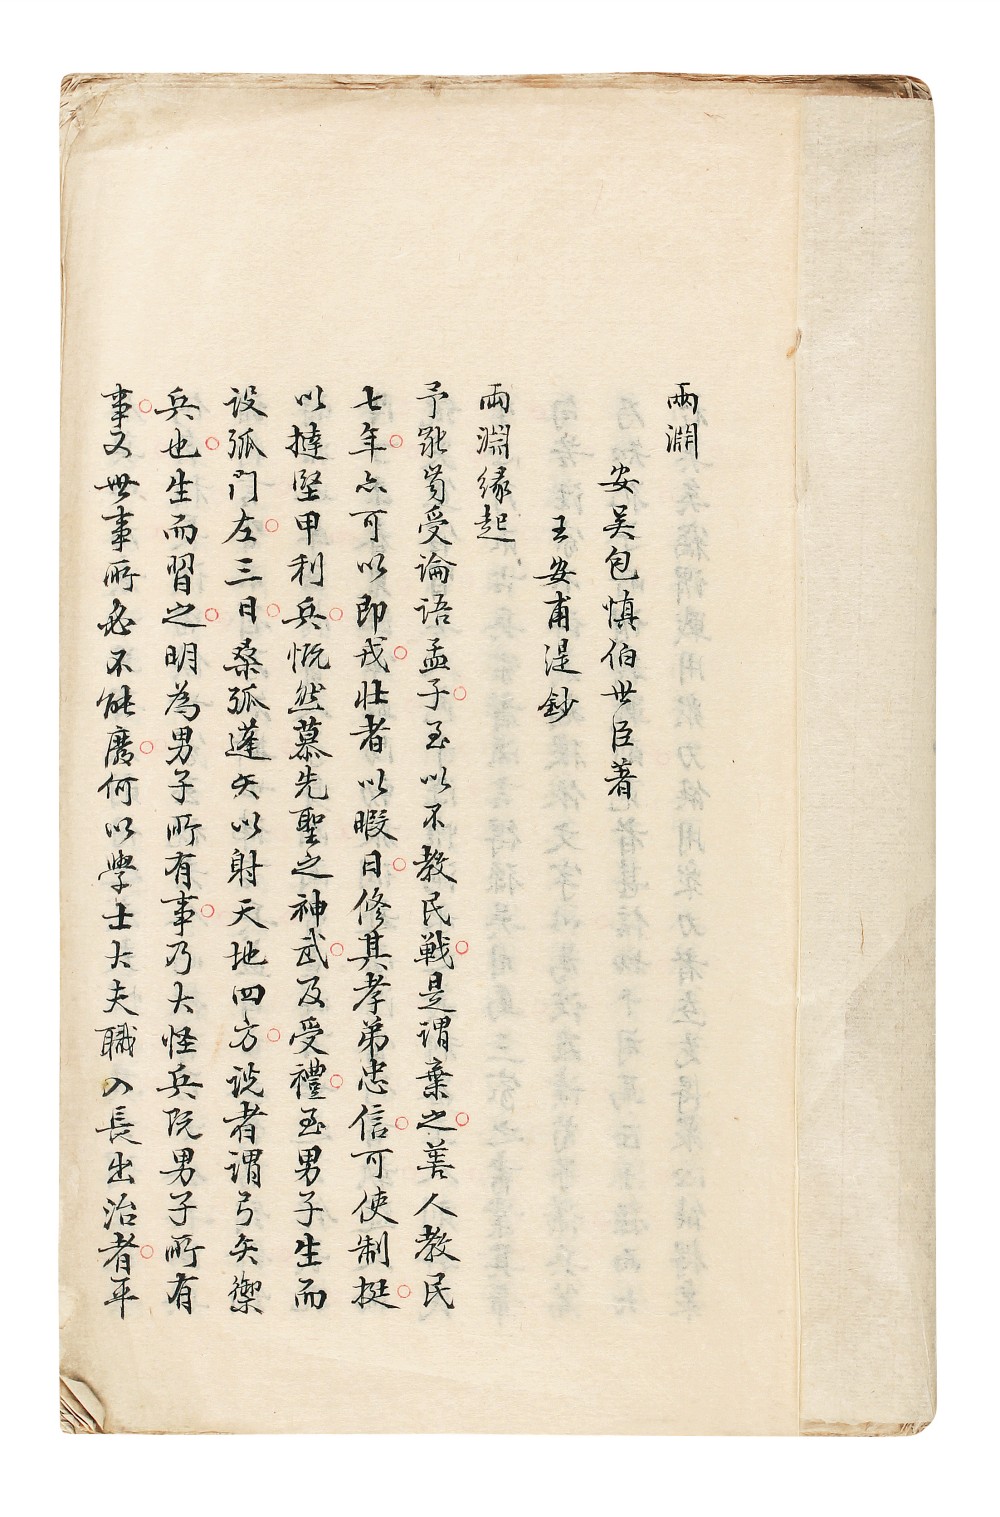 兩淵
安吴包慎伯世臣著
王安甫湜鈔
兩淵緣起
予龀嵗受論語孟子至以不教民戰是謂棄之善人教民
七年亦可以即戎壯者以暇日修其孝弟忠信可使制挺
以撻堅甲利兵慨然慕先聖之神武及受禮至男子生而
设弧门左三日桑弧蓬矢以射天地四方说者謂弓矢禦
兵也生而習之明為男子所有事乃大怪兵既男子所有
事又世事所必不能廢何以學士大夫職入長出治者平